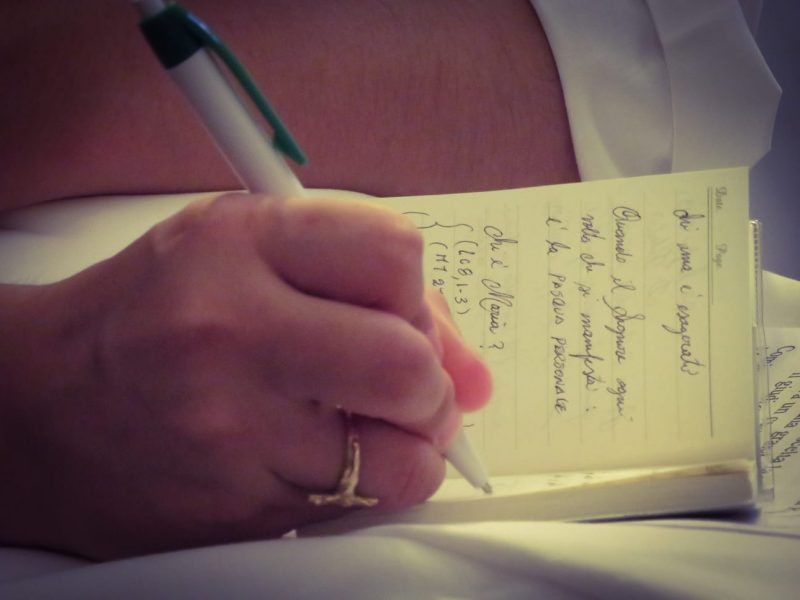 Date Page
Chi ama è esagerato
Quando il Signore ogni
volta che si manifesta:
è la PASQUA PERSONALE
Chi è Maria?
(LC8,1-3)
(MT 2